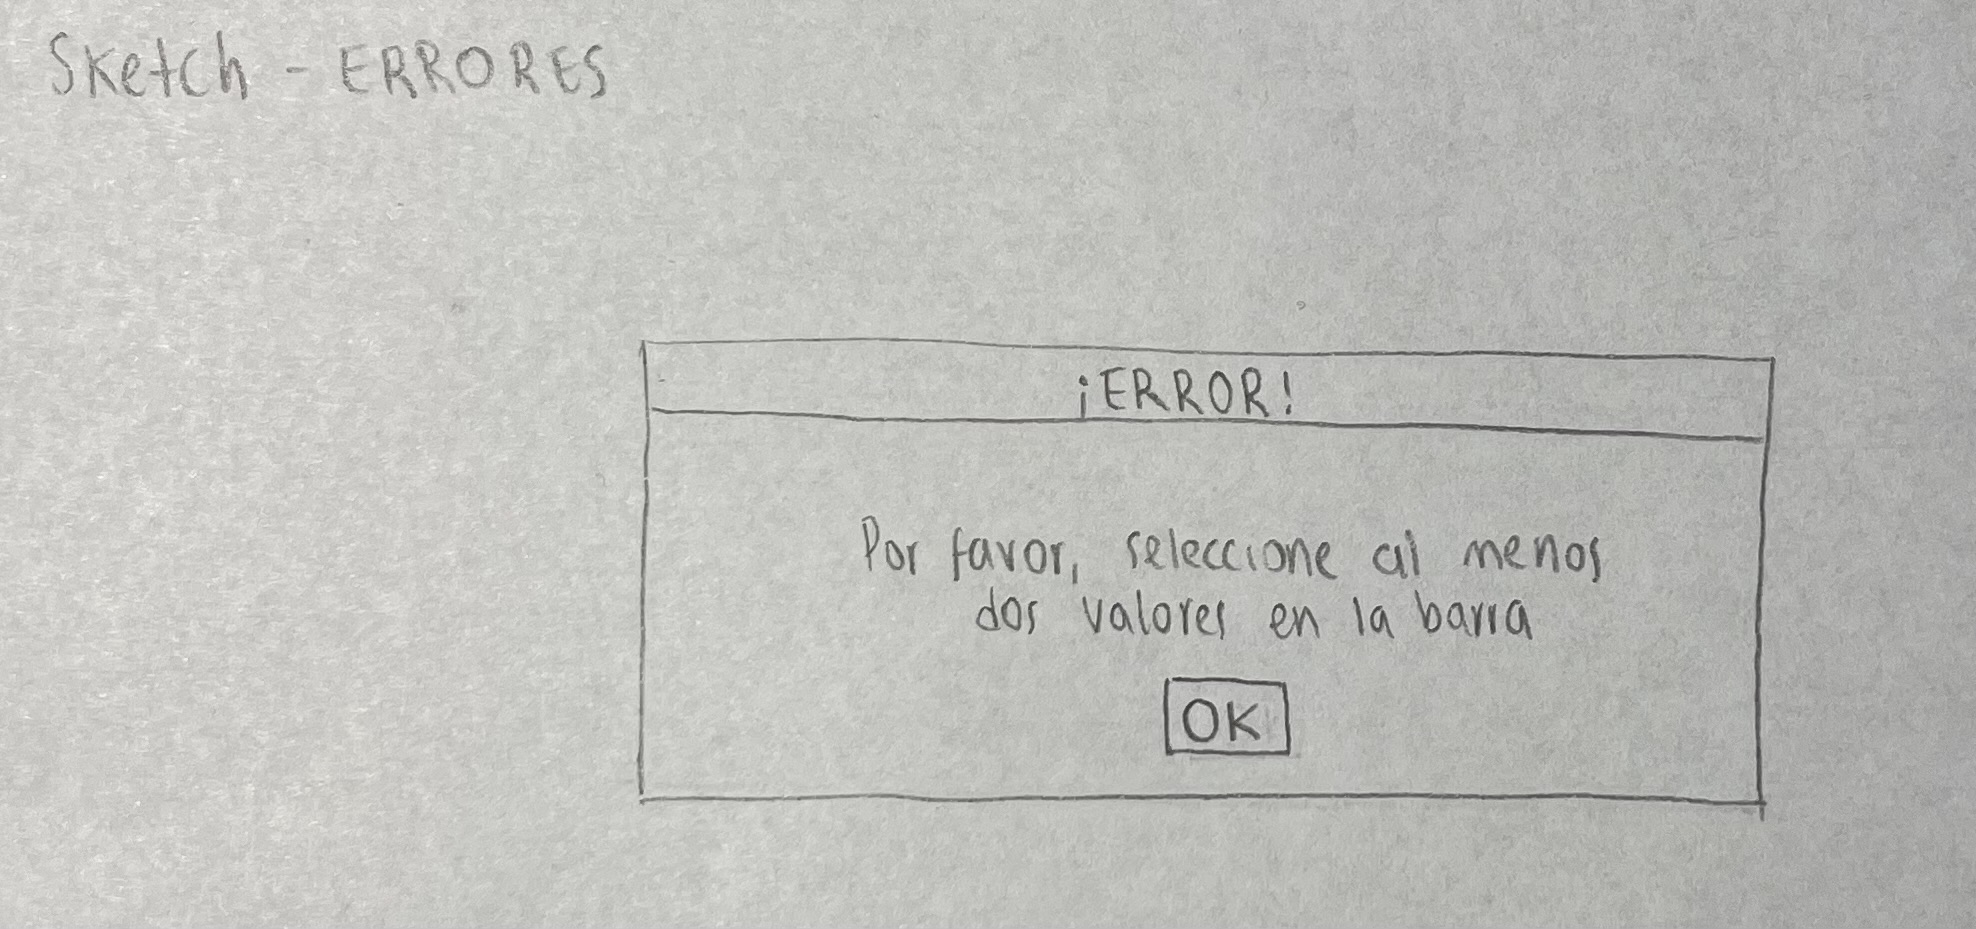 Sketch - ERRORES
¡ERROR!
Por favor, seleccione al menos
dos valores en la barra
OK